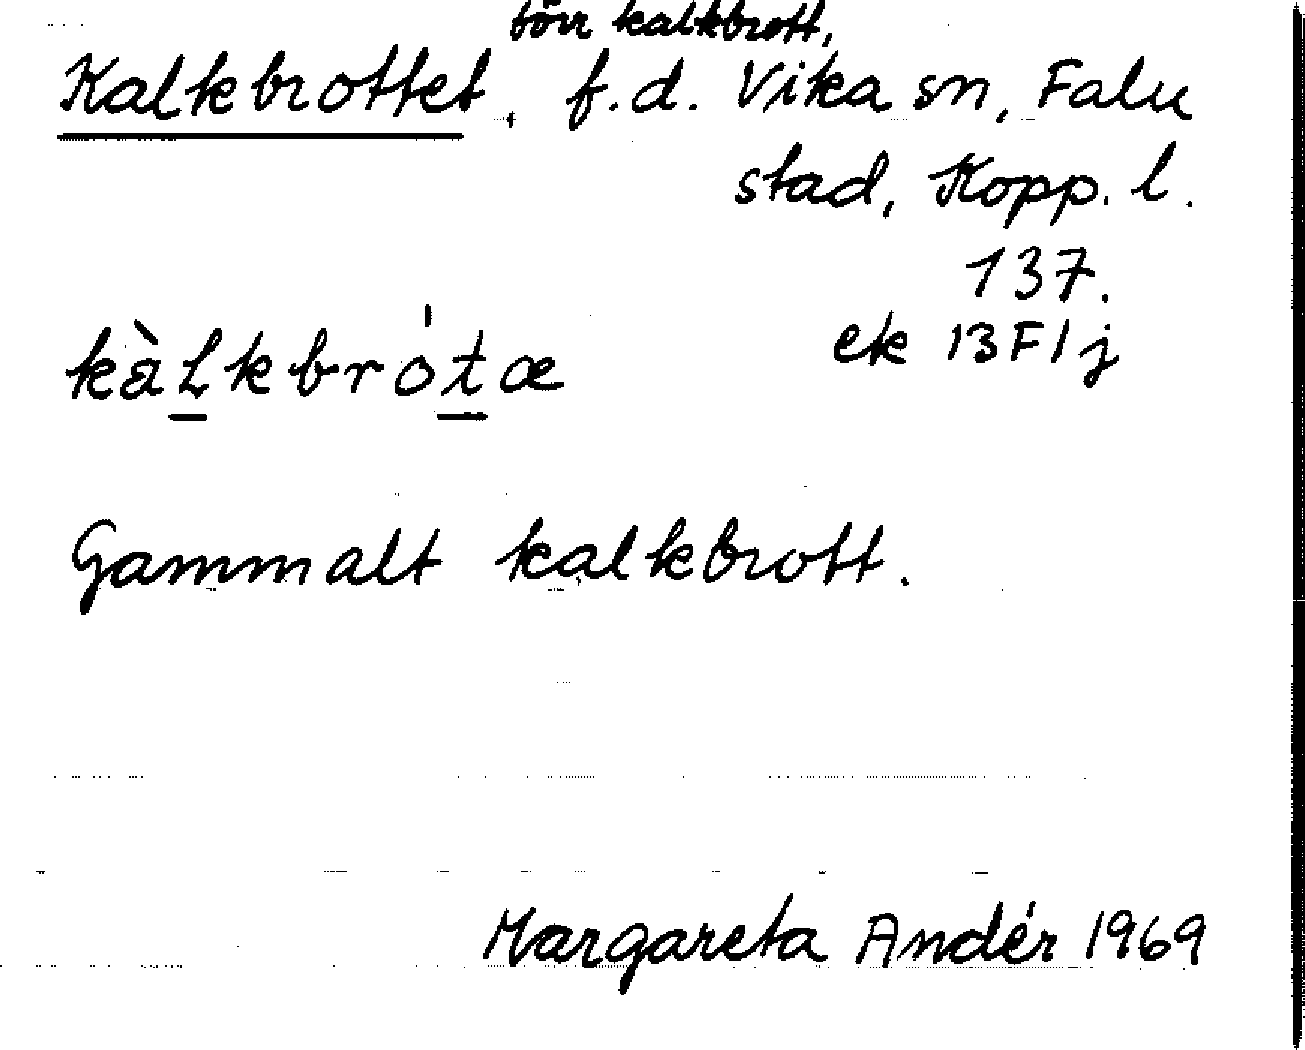 förr kalkbrott,
Kalkbrottet, f.d. Vika sn, Falu
stad, Kopp. l.
137.
ek 13F1j
kàlkbròtæ
Gammalt kalkbrott.
Margareta Andér 1969